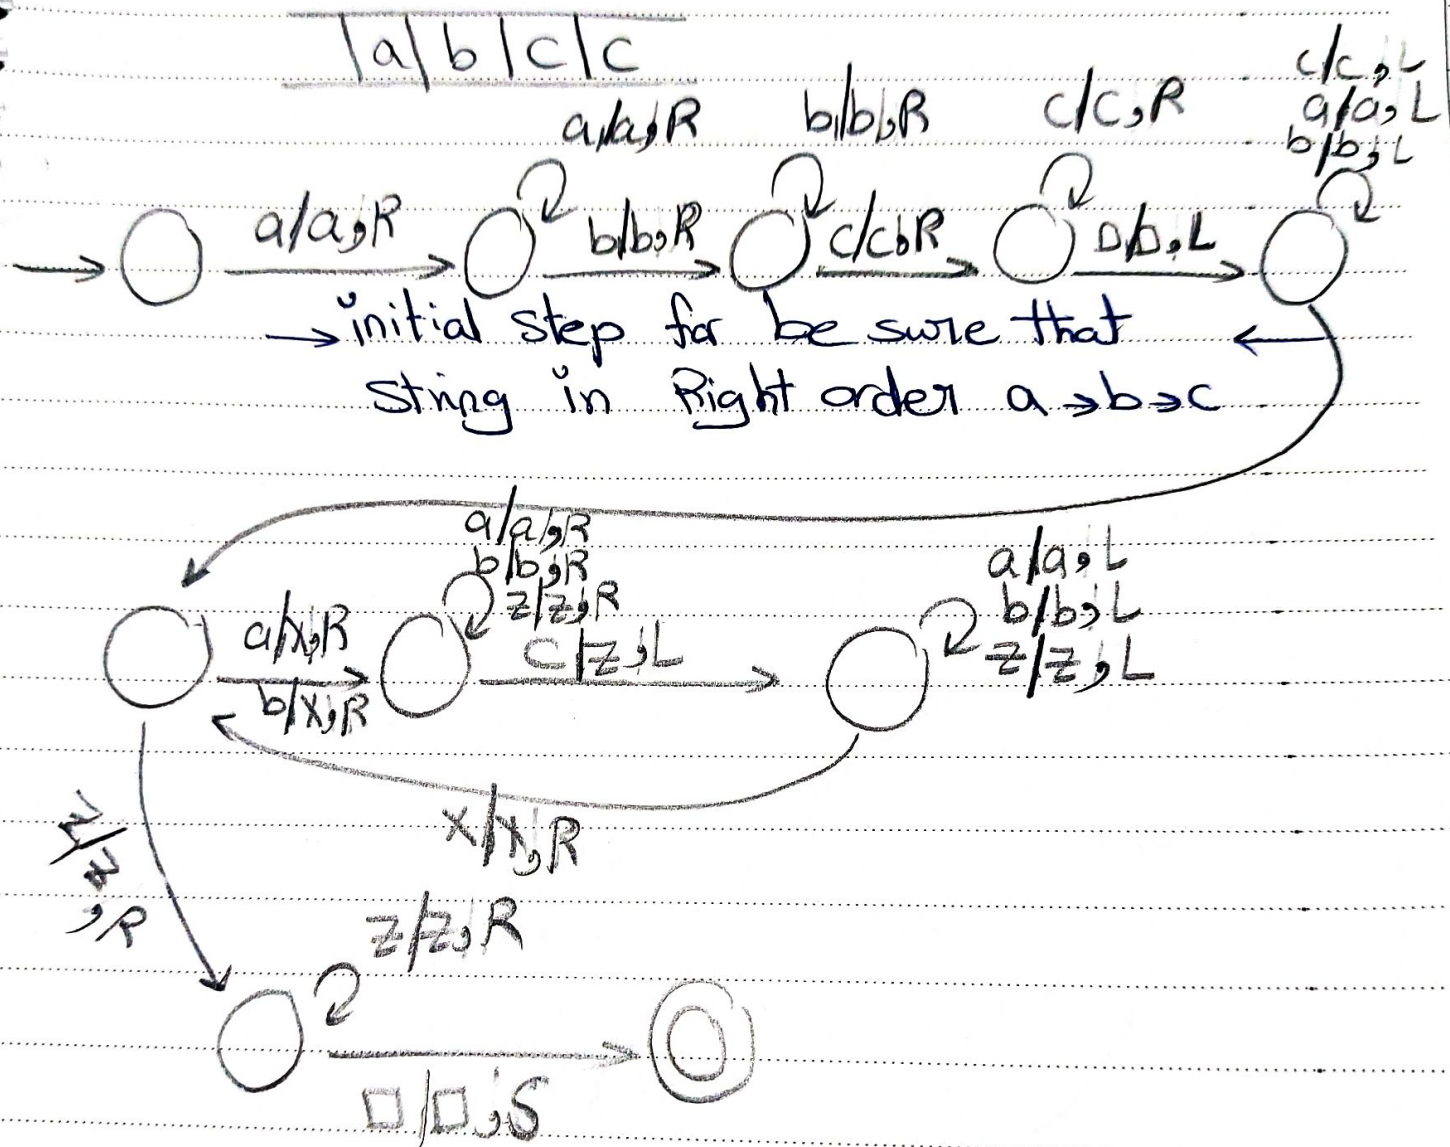 |a|b|c|c
c/c,L
a/a,R b/b,R c/c,R a/a,L
b/b,L
a/a,R b/b,R c/c,R □/□,L
→ initial step for be sure that ←
string in Right order a→b→c
a/a,R
b/b,R a/a,L
z/z,R b/b,L
a/x,R c/z,L z/z,L
b/x,R
x/x,R
z/z,R
z/z,R
□/□,S